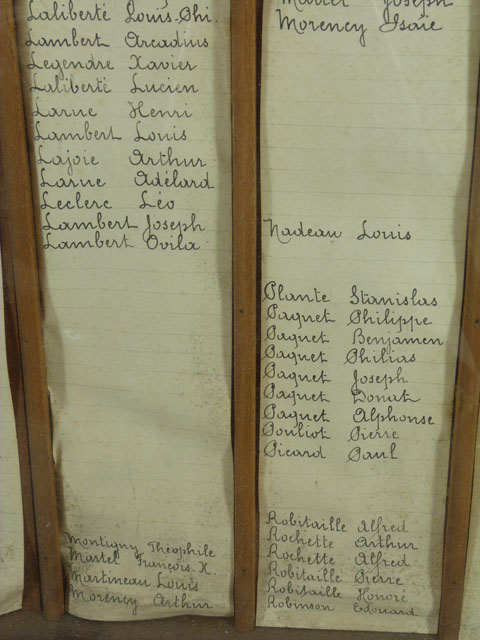 Laliberté Louis-Phi.
Lambert Arcadius
Legendre Xavier
Laliberté Lucien
Larue Henri
Lambert Louis
Lajoie Arthur
Larue Adélard
Leclerc Léo
Lambert Joseph
Lambert Ovila
Montigny Théophile
Martel François X.
Martineau Louis
Morency Arthur
Martel Joseph
Morency Isaïe
Nadeau Louis
Plante Stanislas
Paquet Philippe
Paquet Benjamen
Paquet Philias
Paquet Joseph
Paquet Donat
Paquet Alphonse
Pouliot Pierre
Picard Paul
Robitaille Alfred
Rochette Arthur
Rochette Alfred
Robitaille Pierre
Robitaille Honoré
Robinson Edouard